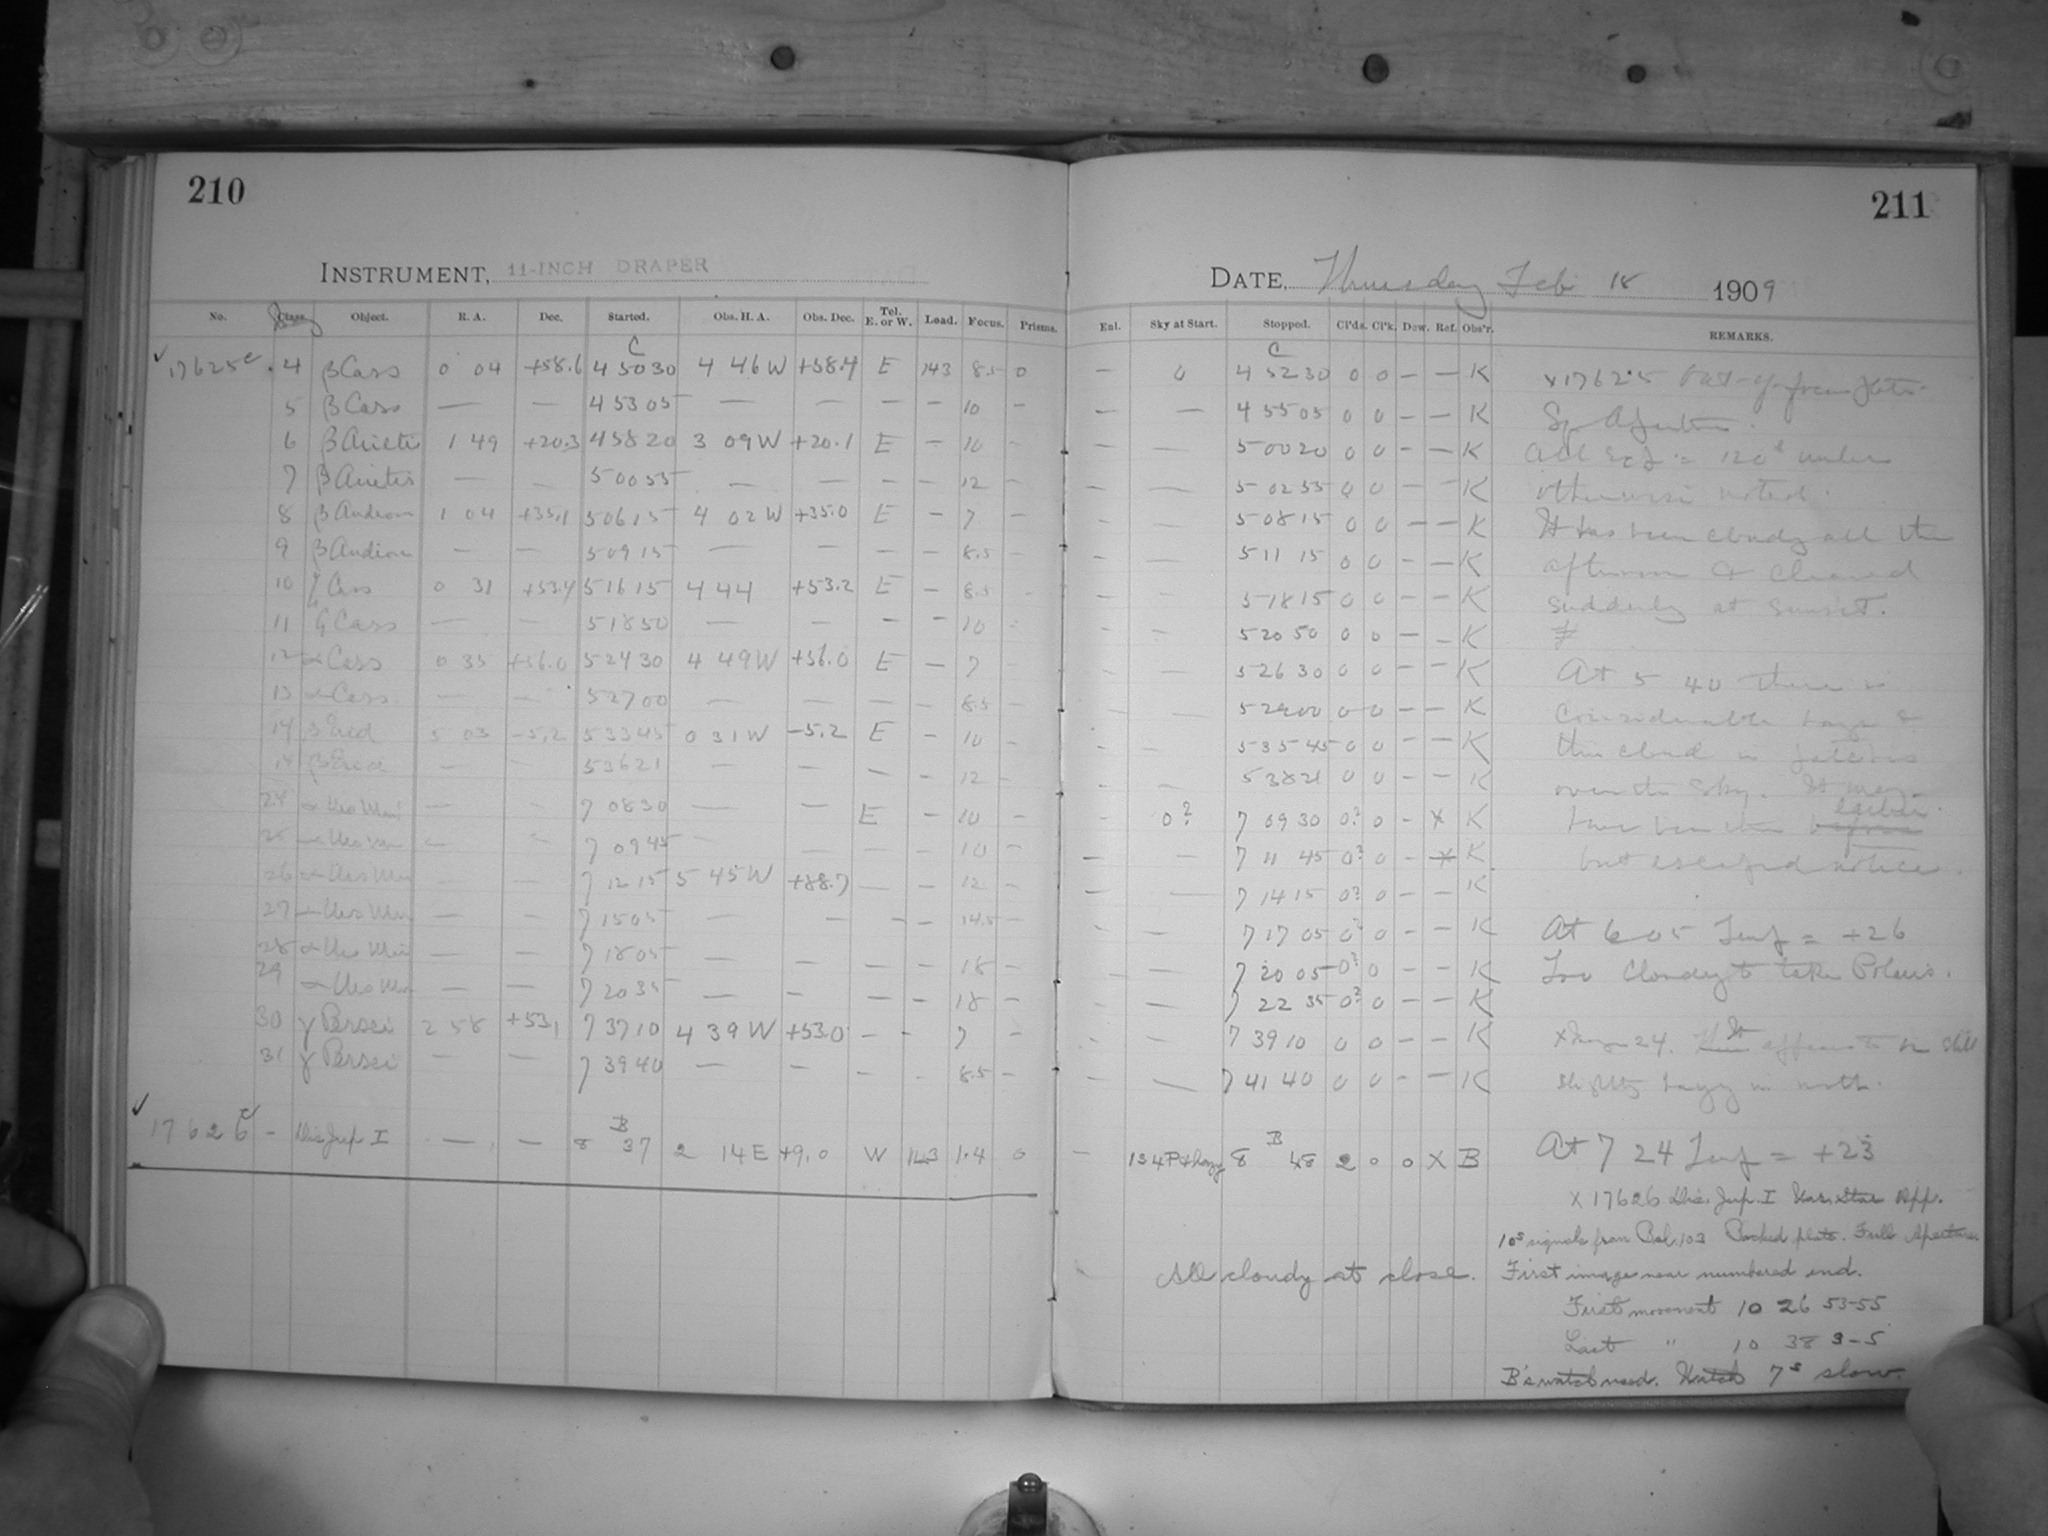 210
INSTRUMENT, 11-INCH DRAPER
No. Class. Object. R. A. Dec. Started. Obs. H. A. Obs. Dec. Tel. E. or W. Load. Focus. Prisms.
C
17625 4 β Cass 0 04 +58.6 4 50 30 4 46 W +58.4 E 143 8.5 0
5 β Cass — — 4 53 05 — — — — 10 —
6 β Arietis 1 49 +20.3 4 58 20 3 09 W +20.1 E — 10 —
7 β Arietis — — 5 00 55 — — — — 12 —
8 β Androm 1 04 +35.1 5 06 15 4 02 W +35.0 E — 7 —
9 β Androm — — 5 09 15 — — — — 8.5 —
10 ζ Cass 0 31 +53.4 5 16 15 4 44 +53.2 E — 8.5 —
11 ζ Cass — — 5 18 50 — — — — 10 —
12 α Cass 0 35 +56.0 5 24 30 4 49 W +56.0 E — 7 —
13 α Cass — — 5 27 00 — — — — 8.5 —
14 β Erid 5 03 -5.2 5 33 45 0 31 W -5.2 E — 10 —
14 β Erid — — 5 36 21 — — — — 12 —
24 α Urs Min — — 7 08 30 — — E — 10 —
25 α Urs Min — — 7 09 45 — — — — 10 —
26 α Urs Min — — 7 12 15 5 45 W +88.7 — — 12 —
27 α Urs Min — — 7 15 05 — — — — 14.5 —
28 α Urs Min — — 7 18 05 — — — — 18 —
29 α Urs Min — — 7 20 35 — — — — 18 —
30 γ Persei 2 58 +53.1 7 37 10 4 39 W +53.0 — — 7 —
31 γ Persei — — 7 39 40 — — — — 8.5 —
B
17626 — Dis Jup I — — 8 37 2 14 E +9.0 W 143 1.4 0
211
DATE, Thursday Feb 18 1909
Enl. Sky at Start. Stopped. Cl'ds. Cl'k. Dew. Ref. Obs'r. REMARKS.
C
— 0 4 52 30 0 0 — — K
— — 4 55 05 0 0 — — K
— — 5 00 20 0 0 — — K
— — 5 02 55 0 0 — — K
— — 5 08 15 0 0 — — K
— — 5 11 15 0 0 — — K
— — 5 18 15 0 0 — — K
— — 5 20 50 0 0 — — K
— — 5 26 30 0 0 — — K
— — 5 29 00 0 0 — — K
— — 5 35 45 0 0 — — K
— — 5 38 21 0 0 — — K
— 0? 7 09 30 0? 0 — x K
— — 7 11 45 0? 0 — x K
— — 7 14 15 0? 0 — — K
— — 7 17 05 0? 0 — — K
— — 7 20 05 0? 0 — — K
— — 7 22 35 0? 0 — — K
— — 7 39 10 0 0 — — K
— — 7 41 40 0 0 — — K
B
— 8 48 2 0 0 X B
All cloudy at close.
x 17625
All Exp = 120s unless
otherwise noted.
It has been cloudy all the
afternoon & cleared
suddenly at sunset.
At 5 40 there is
considerable haze &
thin cloud in patches
over the sky. It may
have been there before earlier
but escaped notice.
At 6 05 Temp = +26
Too cloudy to take Polaris.
24. It appears to be still
slightly hazy in north.
At 7 24 Temp = +23
X 17626 Dis. Jup. I Var. Star App.
10s signals from Bal. 103 Backed plate. Full Aperture
First image near numbered end.
First movement 10 26 53-55
Last " 10 38 3-5
B's watch used. Watch 7s slow.